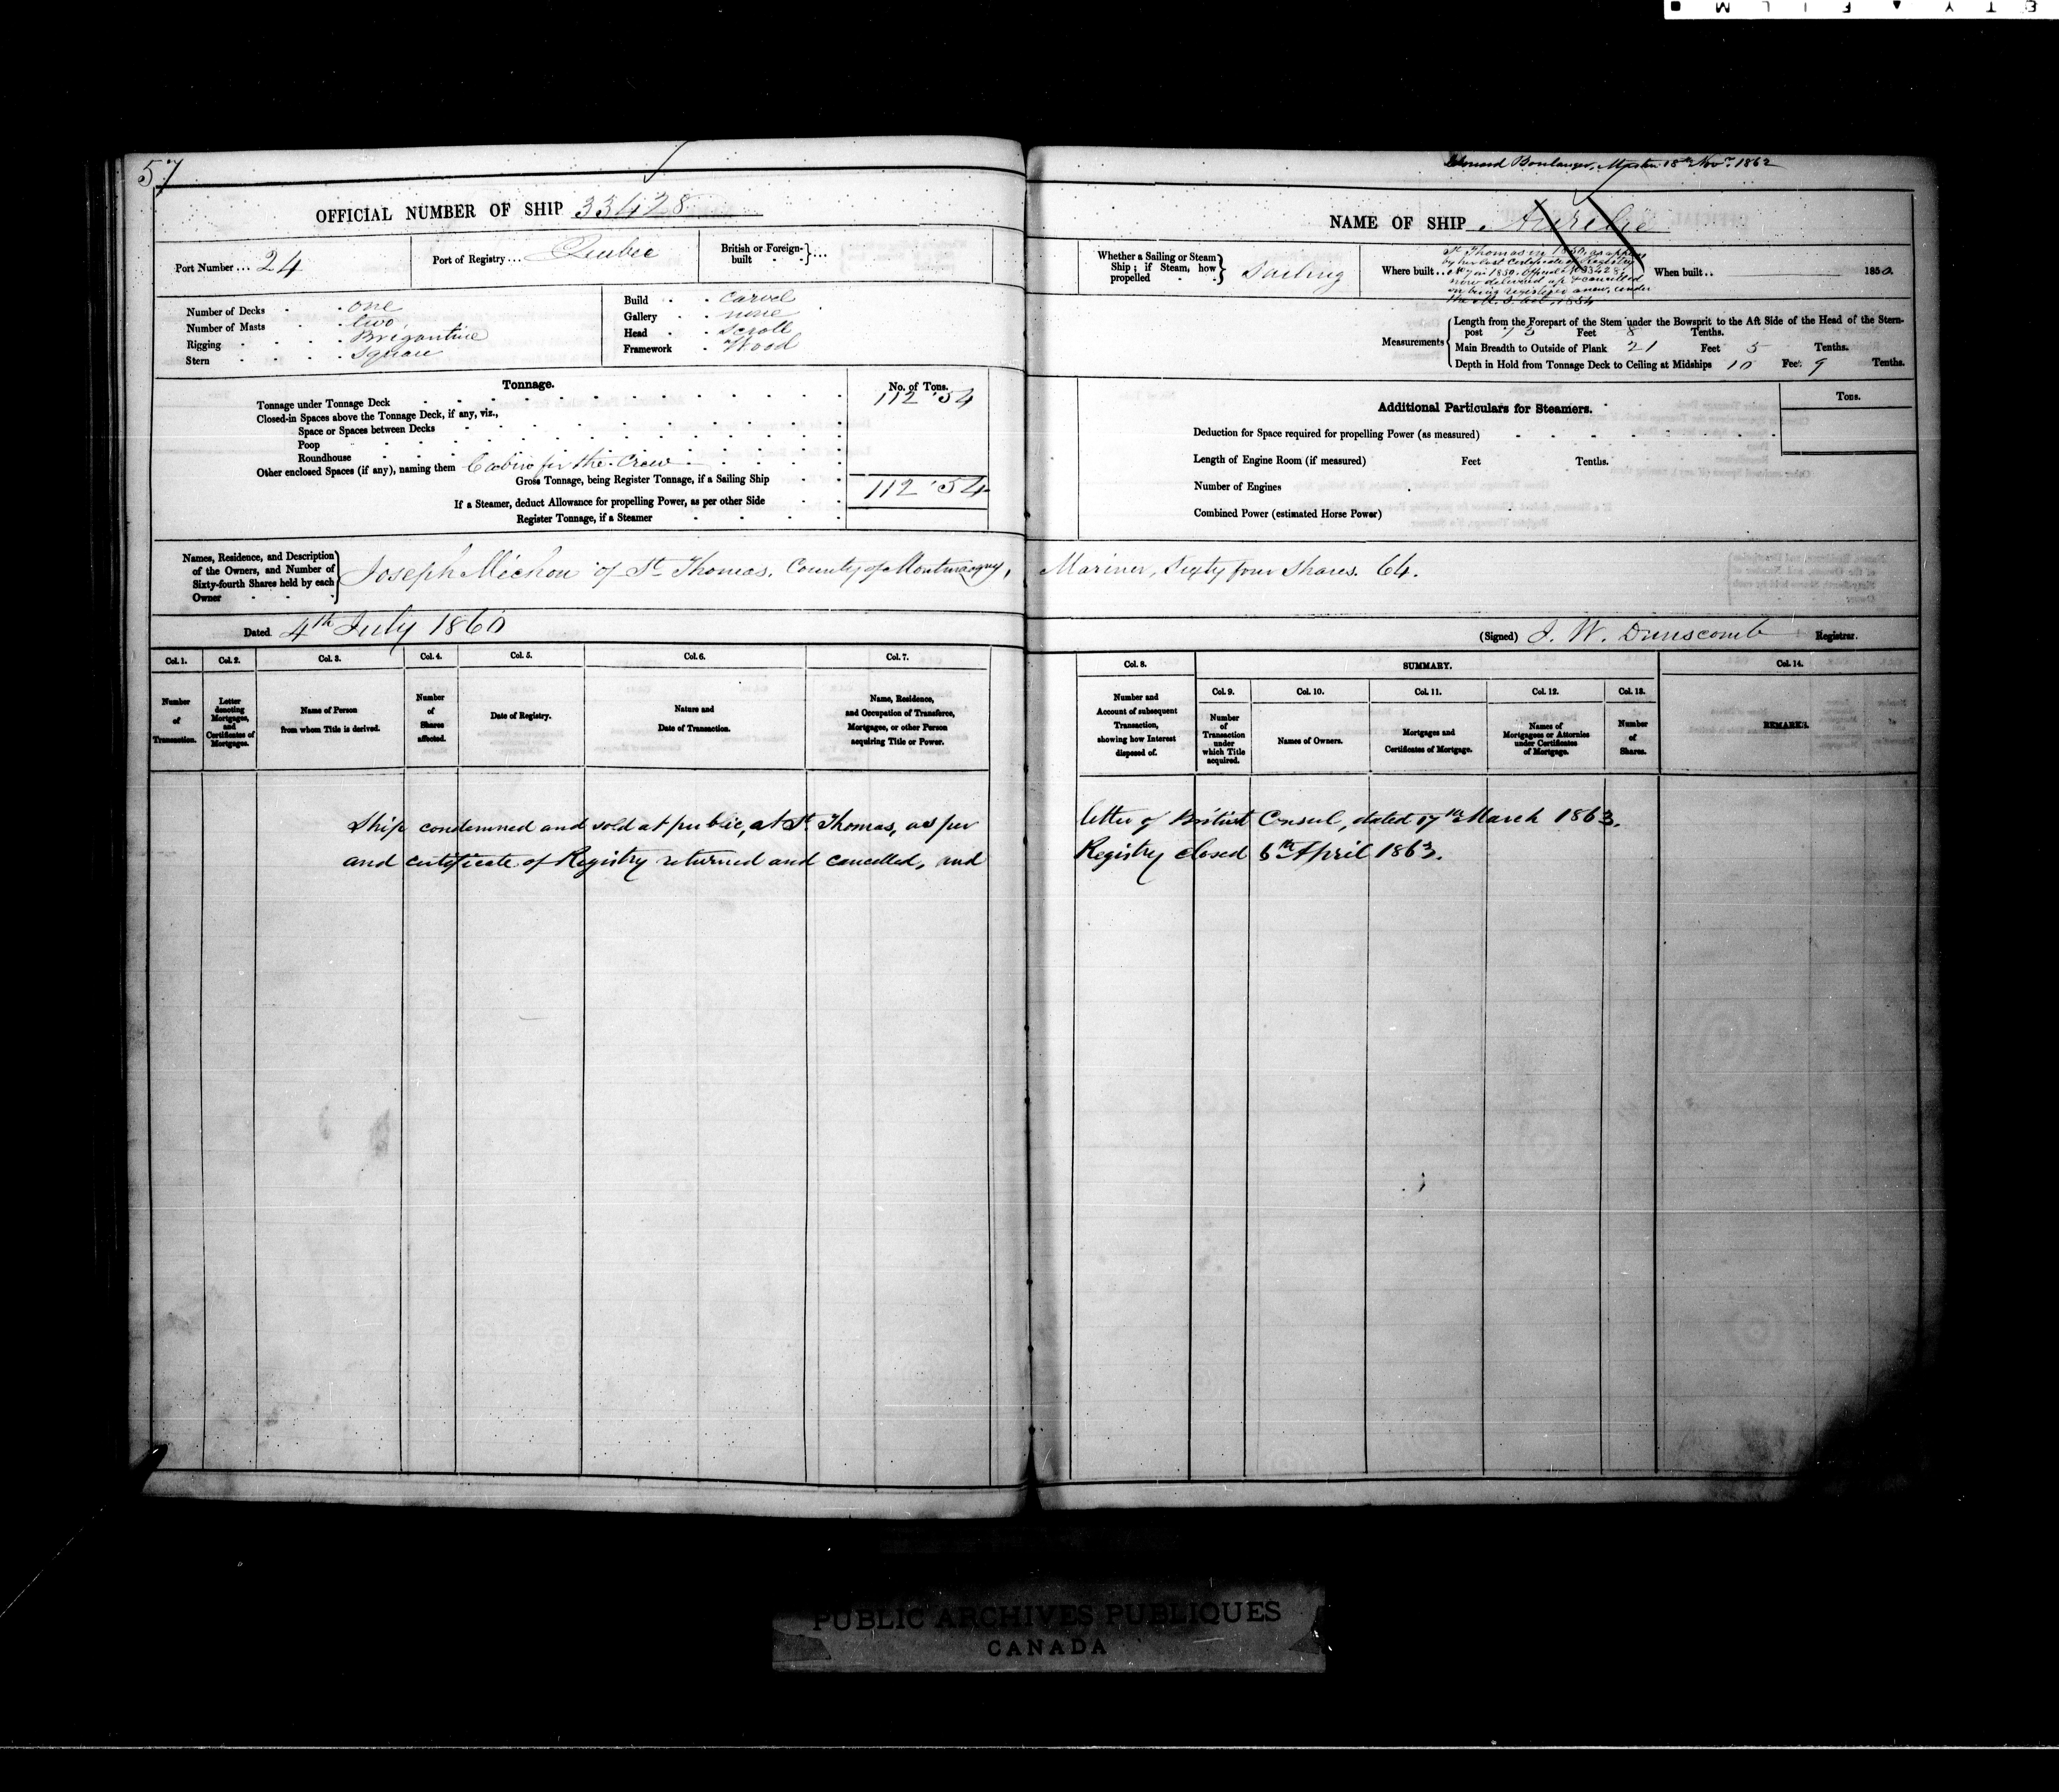 57
Master 18th Novr. 1862
OFFICIAL NUMBER OF SHIP 33428
NAME OF SHIP Aurelie
Port Number ... 24
Port of Registry ... Quebec
British or Foreign-built ...
Whether a Sailing or Steam Ship; if Steam, how propelled Sailing
Where built..
St. Thomas in 1850, as appears
by her last Certificate of Registry
now delivered up & cancelled
on being registered anew, under
the M. S. Act, 1854
When built.. 1850.
Number of Decks one
Number of Masts two
Rigging Brigantine
Stern Square
Build Carvel
Gallery none
Head Scroll
Framework Wood
Measurements
Length from the Forepart of the Stem under the Bowsprit to the Aft Side of the Head of the Stern-
post 73 Feet 8 Tenths.
Main Breadth to Outside of Plank 21 Feet 5 Tenths.
Depth in Hold from Tonnage Deck to Ceiling at Midships 10 Feet 9 Tenths.
Tonnage.
No. of Tons.
Tonnage under Tonnage Deck 112 . 54
Closed-in Spaces above the Tonnage Deck, if any, viz.,
Space or Spaces between Decks
Poop
Roundhouse
Other enclosed Spaces (if any), naming them Cabin for the Crew
Gross Tonnage, being Register Tonnage, if a Sailing Ship 112 . 54
If a Steamer, deduct Allowance for propelling Power, as per other Side
Register Tonnage, if a Steamer
Additional Particulars for Steamers.
Tons.
Deduction for Space required for propelling Power (as measured)
Length of Engine Room (if measured) Feet Tenths.
Number of Engines
Combined Power (estimated Horse Power)
Names, Residence, and Description
of the Owners, and Number of
Sixty-fourth Shares held by each
Owner
Joseph Michon of St. Thomas, County of Montmagny, Mariner, Sixty four shares. 64.
Dated 4th July 1860
(Signed) J. W. Dunscomb Registrar.
Col. 1.
Number
of
Transaction.
Col. 2.
Letter
denoting
Mortgages,
and
Certificates of
Mortgages.
Col. 3.
Name of Person
from whom Title is derived.
Col. 4.
Number
of
Shares
affected.
Col. 5.
Date of Registry.
Col. 6.
Nature and
Date of Transaction.
Col. 7.
Name, Residence,
and Occupation of Transferee,
Mortgagee, or other Person
acquiring Title or Power.
Col. 8.
Number and
Account of subsequent
Transaction,
showing how Interest
disposed of.
SUMMARY.
Col. 9.
Number
of
Transaction
under
which Title
acquired.
Col. 10.
Names of Owners.
Col. 11.
Mortgages and
Certificates of Mortgage.
Col. 12.
Names of
Mortgagees or Attornies
under Certificates
of Mortgage.
Col. 13.
Number
of
Shares.
Col. 14.
REMARKS.
Ship condemned and sold at public, at St. Thomas, as per letter of British Consul, dated 17th March 1863.
and certificate of Registry returned and cancelled, and Registry closed 6th April 1863.
PUBLIC ARCHIVES PUBLIQUES
CANADA